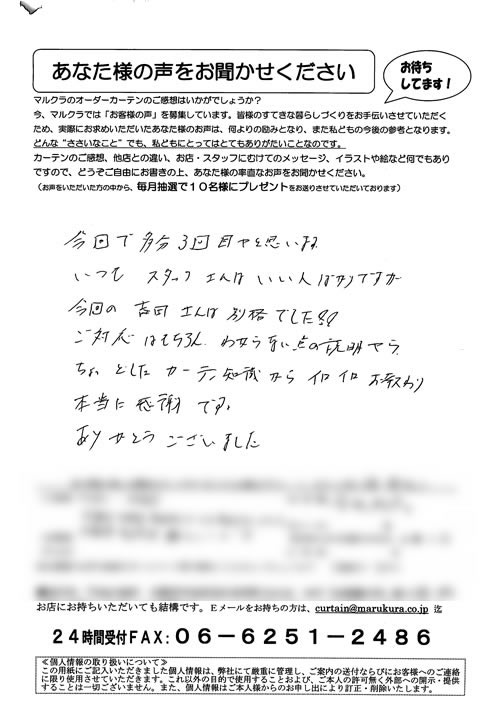 あなた様の声をお聞かせください
お待ち
してます！
マルクラのオーダーカーテンのご感想はいかがでしょうか？
今、マルクラでは「お客様の声」を募集しています。皆様のすてきな暮らしづくりをお手伝いさせていただく
ため、実際にお求めいただいたあなた様のお声は、何よりの励みとなり、また私どもの今後の参考となります。
どんな“ささいなこと”でも、私どもにとってはとてもありがたいことなのです。
カーテンのご感想、他店との違い、お店・スタッフにむけてのメッセージ、イラストや絵など何でもあり
ですので、どうぞご自由にお書きの上、あなた様の率直なお声をお聞かせください。
（お声をいただいた方の中から、毎月抽選で１０名様にプレゼントをお送りさせていただいております）
今回で多分3回目やと思います
いつも スタッフさんは いい人ばかりですが
今回の 吉田さんは 別格でした!!
ご対応はもちろん わからない点の説明やら
ちょっとした カーテン知識から イロイロ お教わり
本当に感謝です。
ありがとうございました
お店にお持ちいただいても結構です。Ｅメールをお持ちの方は、curtain@marukura.co.jp 迄
２４時間受付FAX：０６－６２５１－２４８６
≪個人情報の取り扱いについて≫
この用紙にご記入いただきました個人情報は、弊社にて厳重に管理し、ご案内の送付ならびにお客様へのご連絡
に限り使用させていただきます。これ以外の目的で使用することおよび、ご本人の許可無く外部への開示・提供
することは一切ございません。また、個人情報はご本人様からのお申し出により訂正・削除いたします。